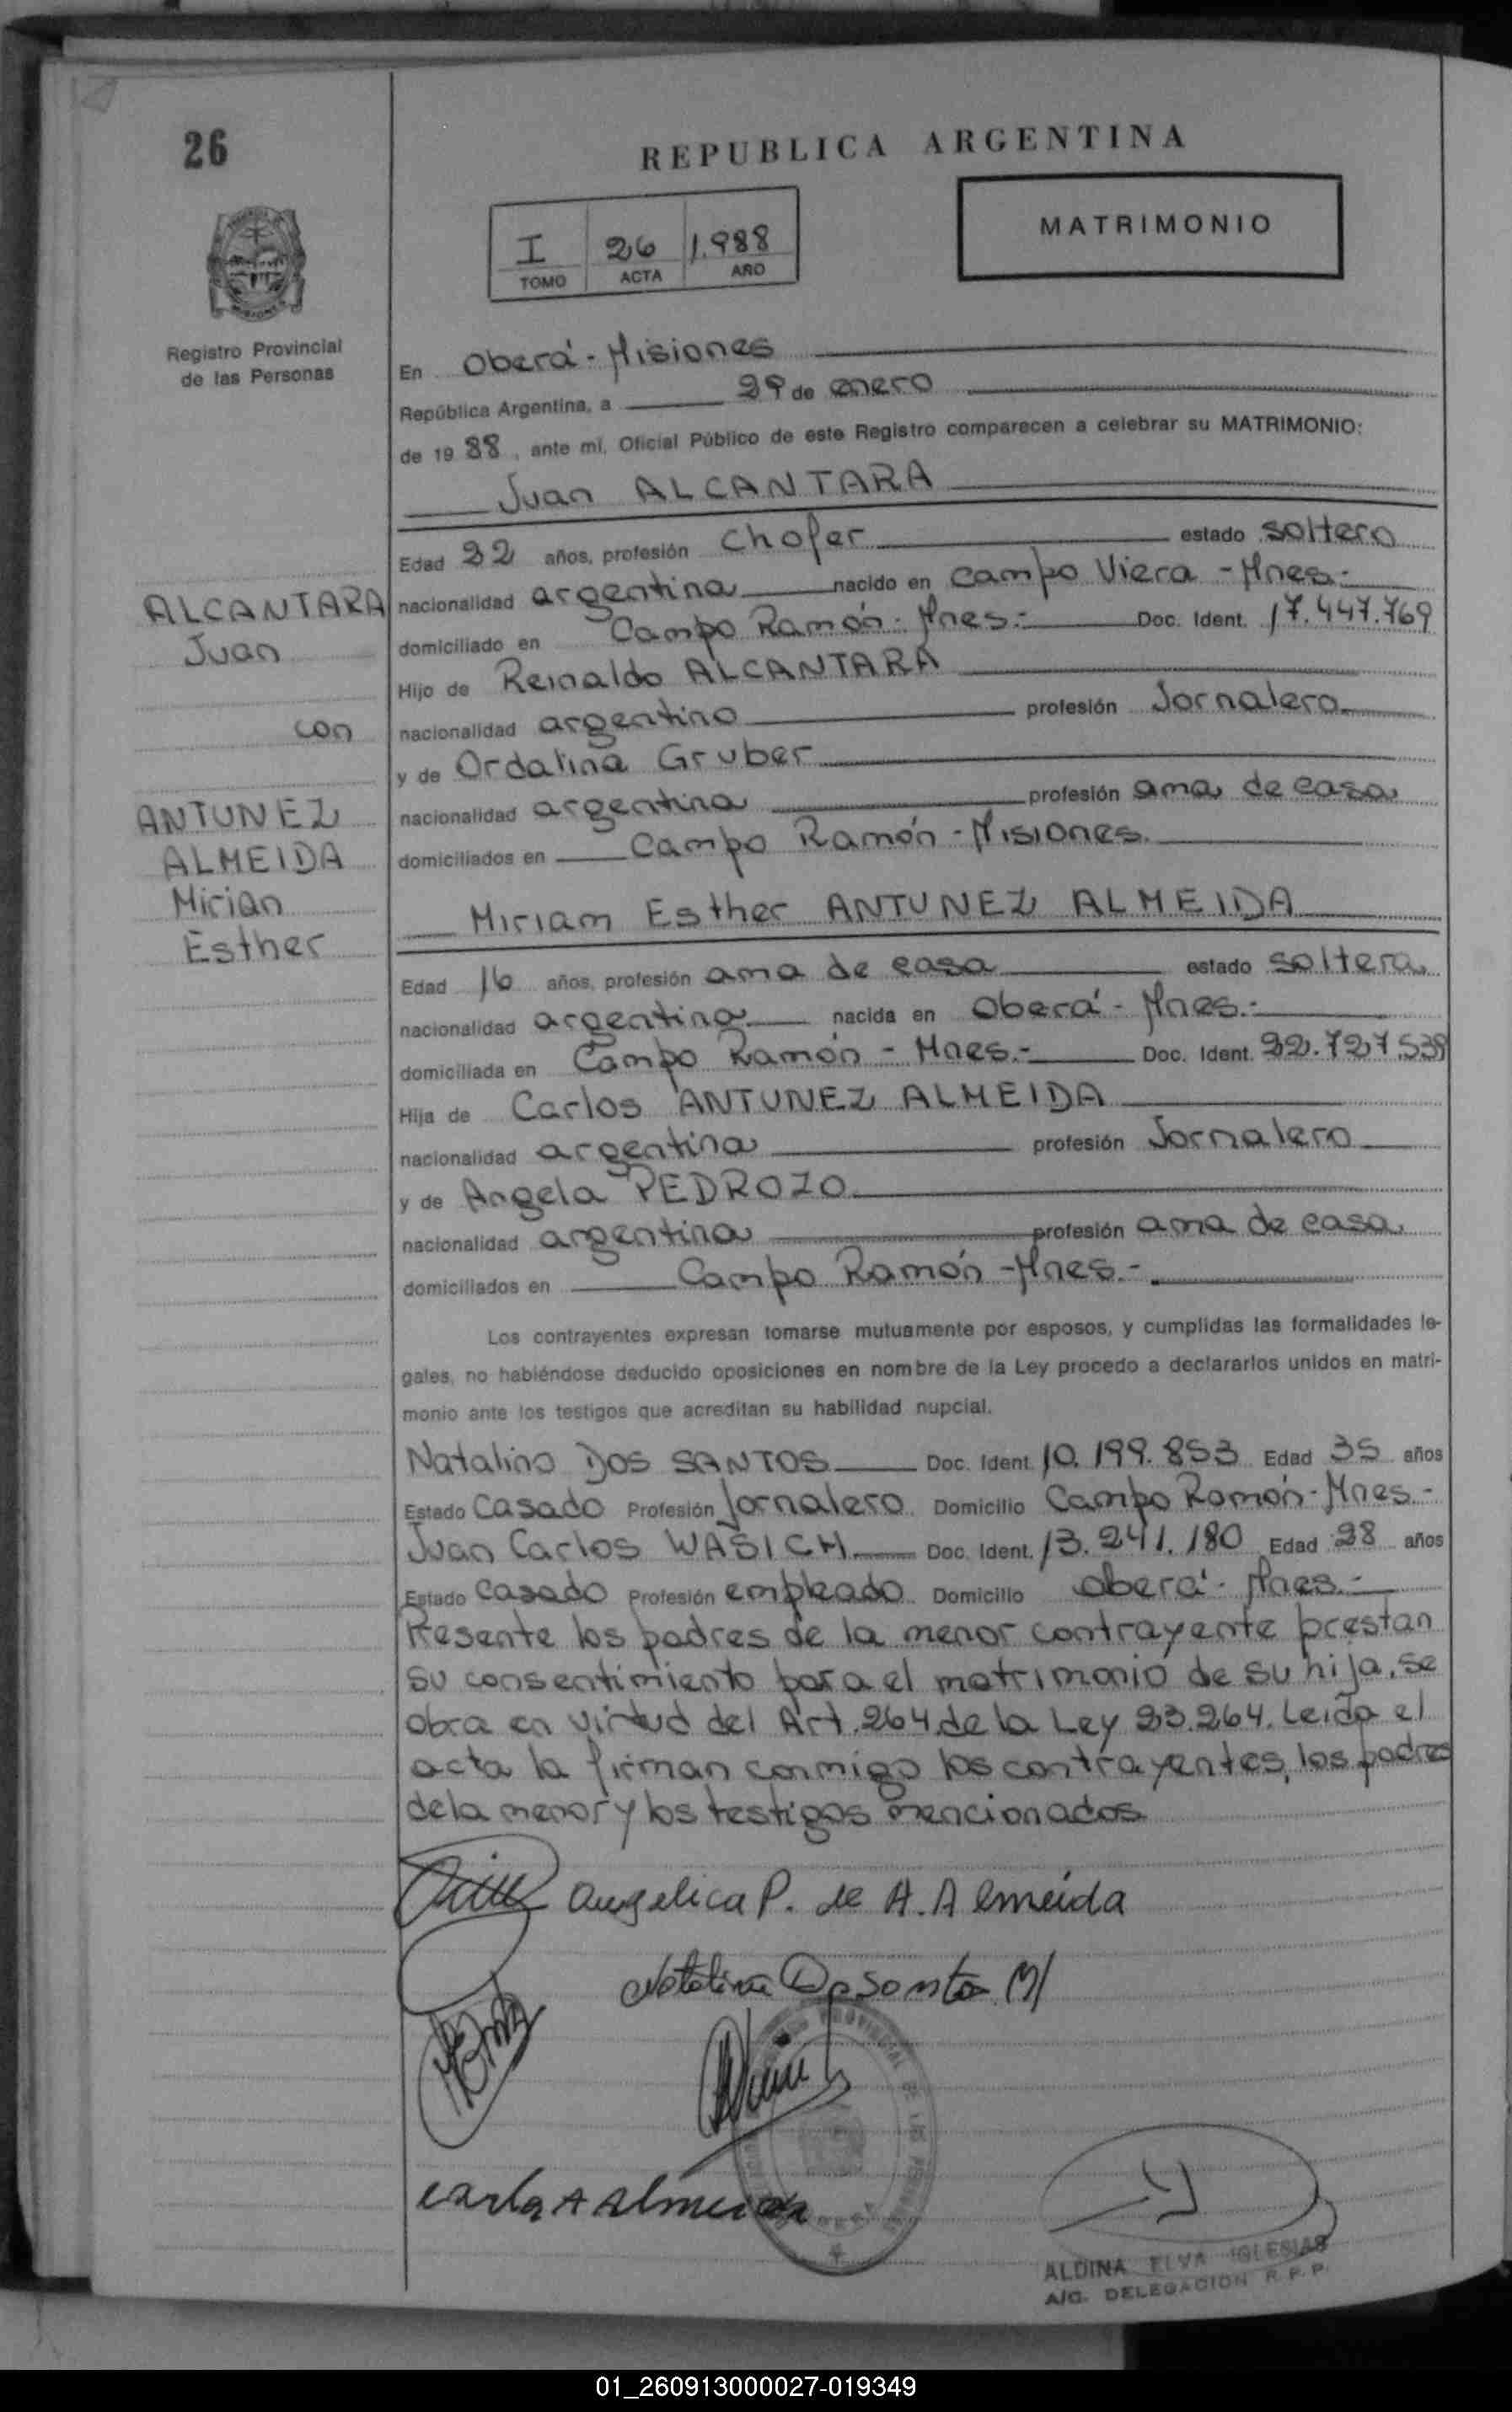 26
REPUBLICA ARGENTINA
MATRIMONIO
I 26 1.988
TOMO ACTA AÑO
Registro Provincial
de las Personas
En Oberá - Misiones
República Argentina, a 29 de enero
de 1988, ante mi, Oficial Público de este Registro comparecen a celebrar su MATRIMONIO:
Juan ALCANTARA
Edad 22 años, profesión Chofer estado soltero
nacionalidad argentina nacido en Campo Viera - Mnes.-
domiciliado en Campo Ramón - Mnes.- Doc. Ident. 17.447.769
Hijo de Reinaldo ALCANTARA
nacionalidad argentino profesión Jornalero
y de Ordalina Gruber
nacionalidad argentina profesión ama de casa
domiciliados en Campo Ramón - Misiones.
ALCANTARA
Juan
con
ANTUNEZ
ALMEIDA
Mirian
Esther
Miriam Esther ANTUNEZ ALMEIDA
Edad 16 años, profesión ama de casa estado soltera
nacionalidad argentina nacida en Oberá - Mnes.-
domiciliada en Campo Ramón - Mnes.- Doc. Ident. 22.727.539
Hija de Carlos ANTUNEZ ALMEIDA
nacionalidad argentina profesión Jornalero
y de Angela PEDROZO
nacionalidad argentina profesión ama de casa
domiciliados en Campo Ramón - Mnes.-
Los contrayentes expresan tomarse mutuamente por esposos, y cumplidas las formalidades le-
gales, no habiéndose deducido oposiciones en nombre de la Ley procedo a declararlos unidos en matri-
monio ante los testigos que acreditan su habilidad nupcial.
Natalino DOS SANTOS Doc. Ident. 10.199.853 Edad 35 años
Estado Casado Profesión Jornalero Domicilio Campo Ramón - Mnes.-
Juan Carlos WASICH Doc. Ident. 13.241.180 Edad 28 años
Estado Casado Profesión empleado Domicilio Oberá - Mnes.-
Presente los padres de la menor contrayente prestan
su consentimiento para el matrimonio de su hija, se
obra en virtud del Art. 264 de la Ley 23.264. Leída el
acta la firman conmigo los contrayentes, los padres
de la menor y los testigos mencionados
Angelica P. de A. Almeida
ALDINA ELVA IGLESIAS
A/C. DELEGACION R.P.P.
01_260913000027-019349